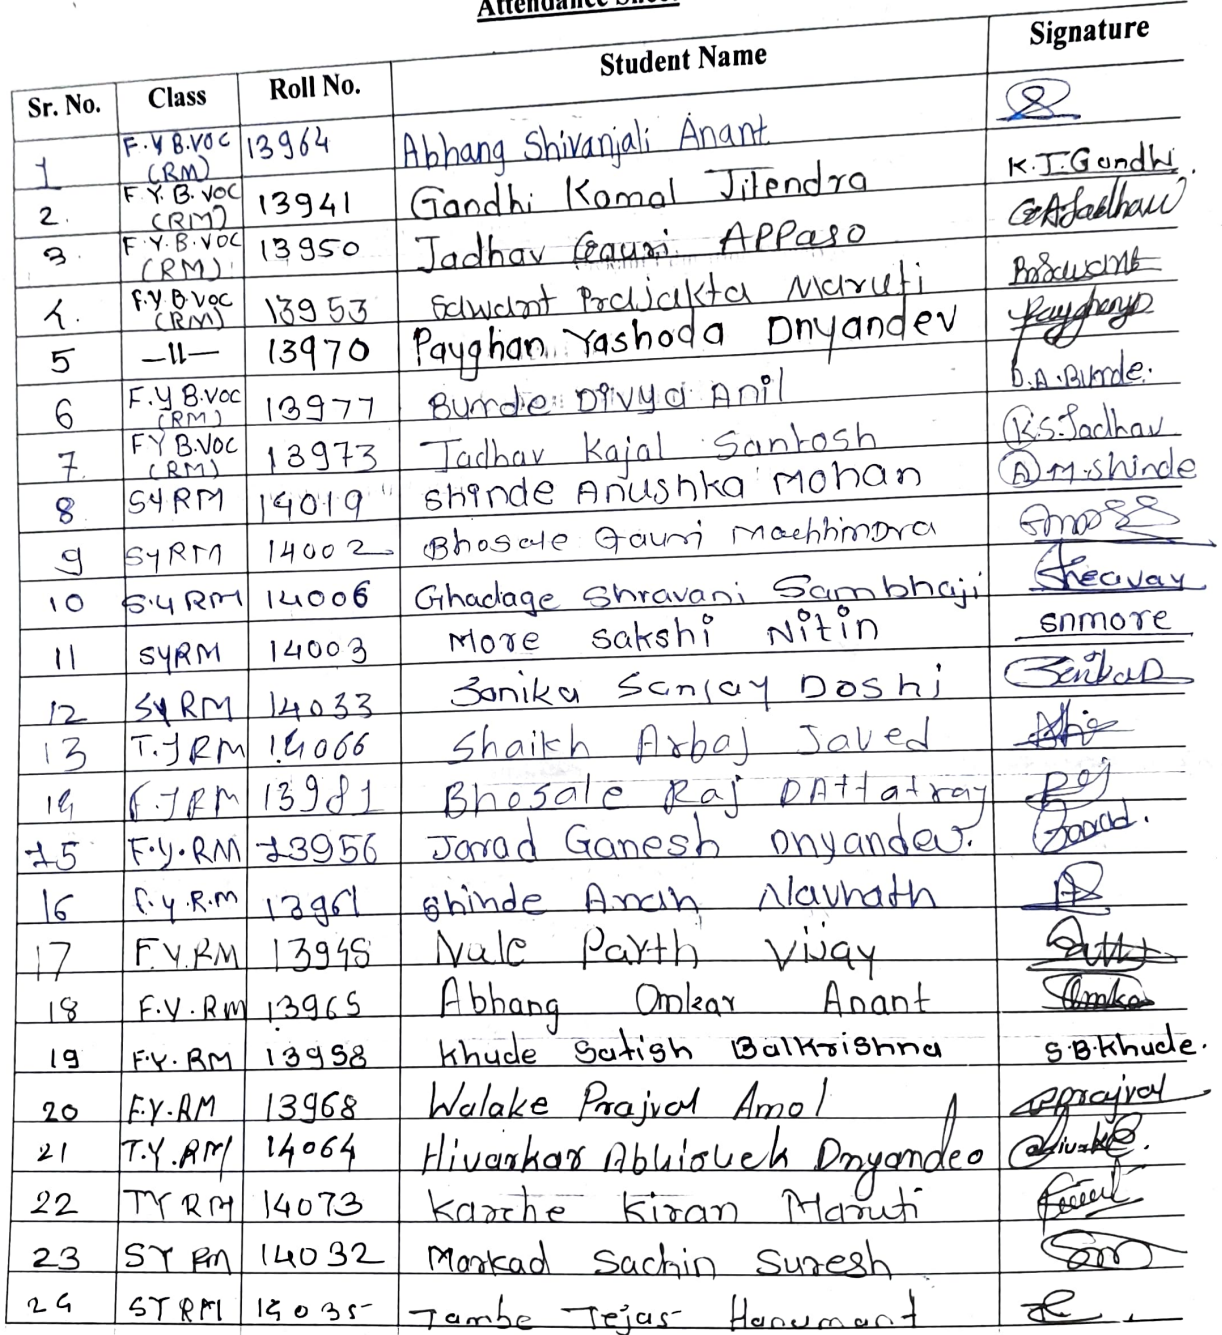 Attendance Sheet
Sr. No. Class Roll No. Student Name Signature
1 F.Y B.VOC (RM) 13964 Abhang Shivanjali Anant
2. F.Y.B.VOC (RM) 13941 Gandhi Kamal Jitendra K.J.Gandhi
3. F.Y.B.VOC (RM) 13950 Jadhav Gauri APPaso GAJadhav
4. F.Y.B.VOC (RM) 13953 Sawant Prajakta Maruti
5 —11— 13970 Payghan Yashoda Dnyandev
6 F.Y B.VOC (RM) 13977 Burde Divya Anil D.A.Burde.
7. FY B.VOC (RM) 13973 Jadhav Kajal Santosh K.S.Jadhav
8 SYRM 14019 Shinde Anushka Mohan A M.Shinde
9 SYRM 14002 Bhosale Gauri Machhindra
10 S.Y RM 14006 Ghadage Shravani Sambhaji
11 SYRM 14003 More Sakshi Nitin snmore
12 SY RM 14033 Sonika Sanjay Doshi
13 T.Y RM 14066 Shaikh Arbaj Javed
14 F.Y RM 13981 Bhosale Raj DAttatray Raj
15 F.Y.RM 13956 Jarad Ganesh Dnyandev.
16 F.Y.R.M 13961 Shinde Navnath
17 F.Y.RM 13945 Nale Parth Vijay
18 F.Y.RM 13965 Abhang Omkar Anant Omkar
19 F.Y.RM 13958 Khude Satish Balkrishna S.B.Khude.
20 F.Y.RM 13968 Walake Prajval Amol prajval
21 T.Y.RM 14064 Hivarkar Abhishek Dnyandeo
22 TY RM 14073 Karche Kiran Maruti
23 SY RM 14032 Markad Sachin Suresh
24 SY RM 14035 Tambe Tejas Hanumant